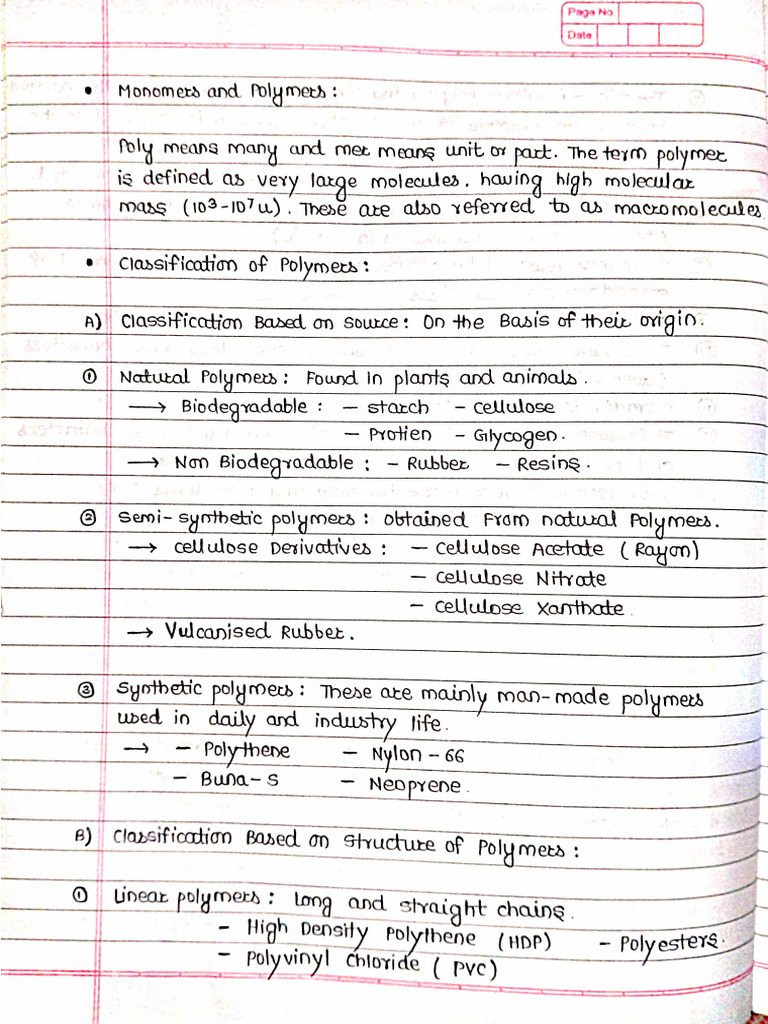 Page No.
Date
• Monomers and Polymers :
Poly means many and mer means unit or part. The term polymer
is defined as very large molecules. having high molecular
mass (10³-10⁷u). These are also referred to as macromolecules
• Classification of Polymers :
A) Classification Based on source : On the Basis of their origin.
① Natural Polymers : Found in plants and animals.
→ Biodegradable : - starch - cellulose
- Protien - Glycogen.
→ Non Biodegradable : - Rubber - Resins.
② Semi-synthetic polymers : obtained From natural Polymers.
→ cellulose Derivatives : - cellulose Acetate (Rayon)
- cellulose Nitrate
- cellulose xanthate.
→ Vulcanised Rubber.
③ Synthetic polymers : These are mainly man-made polymers
used in daily and industry life.
→ - Polythene - Nylon-66
- Buna-s - Neoprene.
B) Classification Based on structure of Polymers :
① Linear polymers : Long and straight chains.
- High Density Polythene (HDP) - Polyesters.
- Polyvinyl chloride ( PVC)